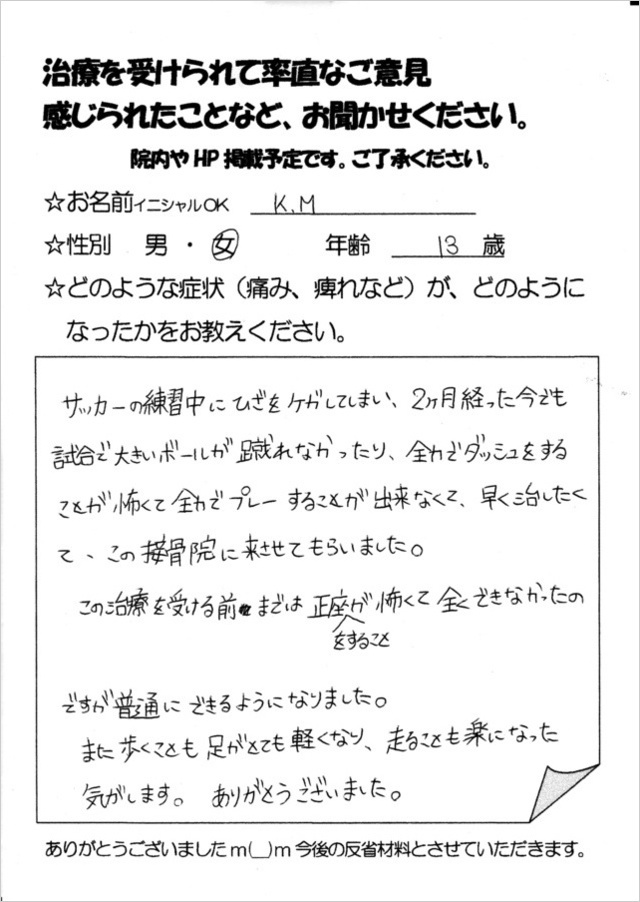 治療を受けられて率直なご意見
感じられたことなど、お聞かせください。
院内やHP掲載予定です。ご了承ください。
☆お名前イニシャルOK K.M
☆性別 男・女 年齢 13 歳
☆どのような症状（痛み、痺れなど）が、どのように
なったかをお教えください。
サッカーの練習中にひざをケガしてしまい、2ヶ月経った今でも
試合で大きいボールが蹴れなかったり、全力でダッシュをする
ことが怖くて全力でプレーすることが出来なくて、早く治したく
て、この接骨院に来させてもらいました。
この治療を受ける前までは正座が怖くて全くできなかったの
をすること
ですが普通にできるようになりました。
また歩くことも足がとても軽くなり、走ることも楽になった
気がします。ありがとうございました。
ありがとうございましたm(__)m今後の反省材料とさせていただきます。